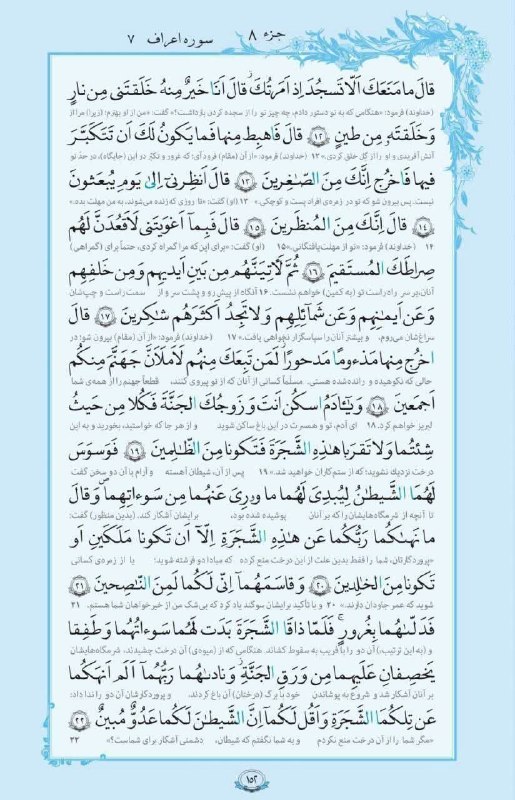 جزء ۸
سوره اعراف ۷
قالَ ما مَنَعَكَ اَلّا تَسجُدَ اِذ اَمَرتُكَ ۖ قالَ اَنَا خَيرٌ مِنهُ خَلَقتَنى مِن نارٍ
(خداوند) فرمود: «هنگامی که به تو دستور دادم، چه چیز تو را از سجده کردن بازداشت؟» گفت: «من از او بهترم؛ (زیرا) مرا از
وَ خَلَقتَهُ مِن طينٍ ﴿۱۲﴾ قالَ فَاهبِط مِنها فَما يَكونُ لَكَ اَن تَتَكَبَّرَ
آتش آفریدی و او را از گل خلق کردی.» ۱۲ (خداوند) فرمود: «از آن (مقام) فرود آی؛ که غرور و تکبّر در این (جایگاه)، در حدّ تو
فيها فَاخرُج اِنَّكَ مِنَ الصّٰغِرينَ ﴿۱۳﴾ قالَ اَنظِرنى اِلىٰ يَومِ يُبعَثونَ
نیست. پس بیرون شو که تو در زمره‌ی افراد پست و کوچکی.» ۱۳ (او) گفت: «تا روزی که زنده می‌شوند، به من مهلت بده.»
﴿۱۴﴾ قالَ اِنَّكَ مِنَ المُنظَرينَ ﴿۱۵﴾ قالَ فَبِمآ اَغوَيتَنى لَاَقعُدَنَّ لَهُم
۱۴ (خداوند) فرمود: «تو از مهلت‌یافتگانی.» ۱۵ (او) گفت: «برای این که مرا گمراه کردی، حتماً برای (گمراهی)
صِراطَكَ المُستَقيمَ ﴿۱۶﴾ ثُمَّ لَاٰتِيَنَّهُم مِن بَينِ اَيديهِم وَ مِن خَلفِهِم
آنان،بر سر راه راست تو (به کمین) خواهم نشست. ۱۶ آنگاه از پیش رو و پشت سر و از سمت راست و چپشان
وَ عَن اَيمٰنِهِم وَ عَن شَمآئِلِهِم وَ لا تَجِدُ اَكثَرَهُم شٰكِرينَ ﴿۱۷﴾ قالَ
سراغشان می‌روم، و بیشتر آنان را سپاسگزار نخواهی یافت.» ۱۷ (خداوند) فرمود: «از آن (مقام) بیرون شو؛ در
اخرُج مِنها مَذءومًا مَدحورًا ۖ لَمَن تَبِعَكَ مِنهُم لَاَملَاَنَّ جَهَنَّمَ مِنكُم
حالی که نکوهیده و رانده‌شده هستی. مسلّماً کسانی از آنان که از تو پیروی کنند، قطعاً جهنم را از همه‌ی شما
اَجمَعينَ ﴿۱۸﴾ وَ يٰٓـٔادَمُ اسكُن اَنتَ وَ زَوجُكَ الجَنَّةَ فَكُلا مِن حَيثُ
لبریز خواهم کرد. ۱۸ ای آدم، تو و همسرت در این باغ ساکن شوید و از هر جا که خواستید، بخورید و به این
شِئتُما وَ لا تَقرَبا هٰذِهِ الشَّجَرَةَ فَتَكونا مِنَ الظّٰلِمينَ ﴿۱۹﴾ فَوَسوَسَ
درخت نزدیک نشوید؛ که از ستم‌کاران خواهید شد.» ۱۹ پس از آن، شیطان آهسته و آرام با آن دو سخن گفت
لَهُمَا الشَّيطٰنُ لِيُبدِىَ لَهُما ما وۥرِىَ عَنهُما مِن سَوءٰتِهِما وَ قالَ
تا آنچه از شرمگاه‌هایشان را که بر آنان پوشیده شده بود، برایشان آشکار کند. (بدین منظور) گفت:
ما نَهىٰكُما رَبُّكُما عَن هٰذِهِ الشَّجَرَةِ اِلّآ اَن تَكونا مَلَكَينِ اَو
«پروردگارتان، شما را فقط بدین علت از این درخت منع کرده که مبادا دو فرشته شوید؛ یا از زمره‌ی کسانی
تَكونا مِنَ الخٰلِدينَ ﴿۲۰﴾ وَ قاسَمَهُمآ اِنّى لَكُما لَمِنَ النّٰصِحينَ ﴿۲۱﴾
شوید که عمر جاودان دارند.» ۲۰ و با تأکید برایشان سوگند یاد کرد که بی‌شک من از خیرخواهان شما هستم. ۲۱
فَدَلّىٰهُما بِغُرورٍ ۚ فَلَمّا ذاقَا الشَّجَرَةَ بَدَت لَهُما سَوءٰتُهُما وَ طَفِقا
و (به این ترتیب،) آن دو را با فریب به سقوط کشاند. هنگامی که از (میوه‌ی) آن درخت چشیدند، شرمگاه‌هایشان
يَخصِفانِ عَلَيهِما مِن وَرَقِ الجَنَّةِ ۖ وَ نادىٰهُما رَبُّهُمآ اَلَم اَنهَكُما
بر آنان آشکار شد و شروع به پوشاندن خود با برگ (درختان) آن باغ کردند، و پروردگارشان آن دو را ندا داد:
عَن تِلكُمَا الشَّجَرَةِ وَ اَقُل لَكُمآ اِنَّ الشَّيطٰنَ لَكُما عَدُوٌّ مُبينٌ ﴿۲۲﴾
«مگر شما را از آن درخت منع نکردم و به شما نگفتم که شیطان، دشمنی آشکار برای شماست؟» ۲۲
۱۵۲